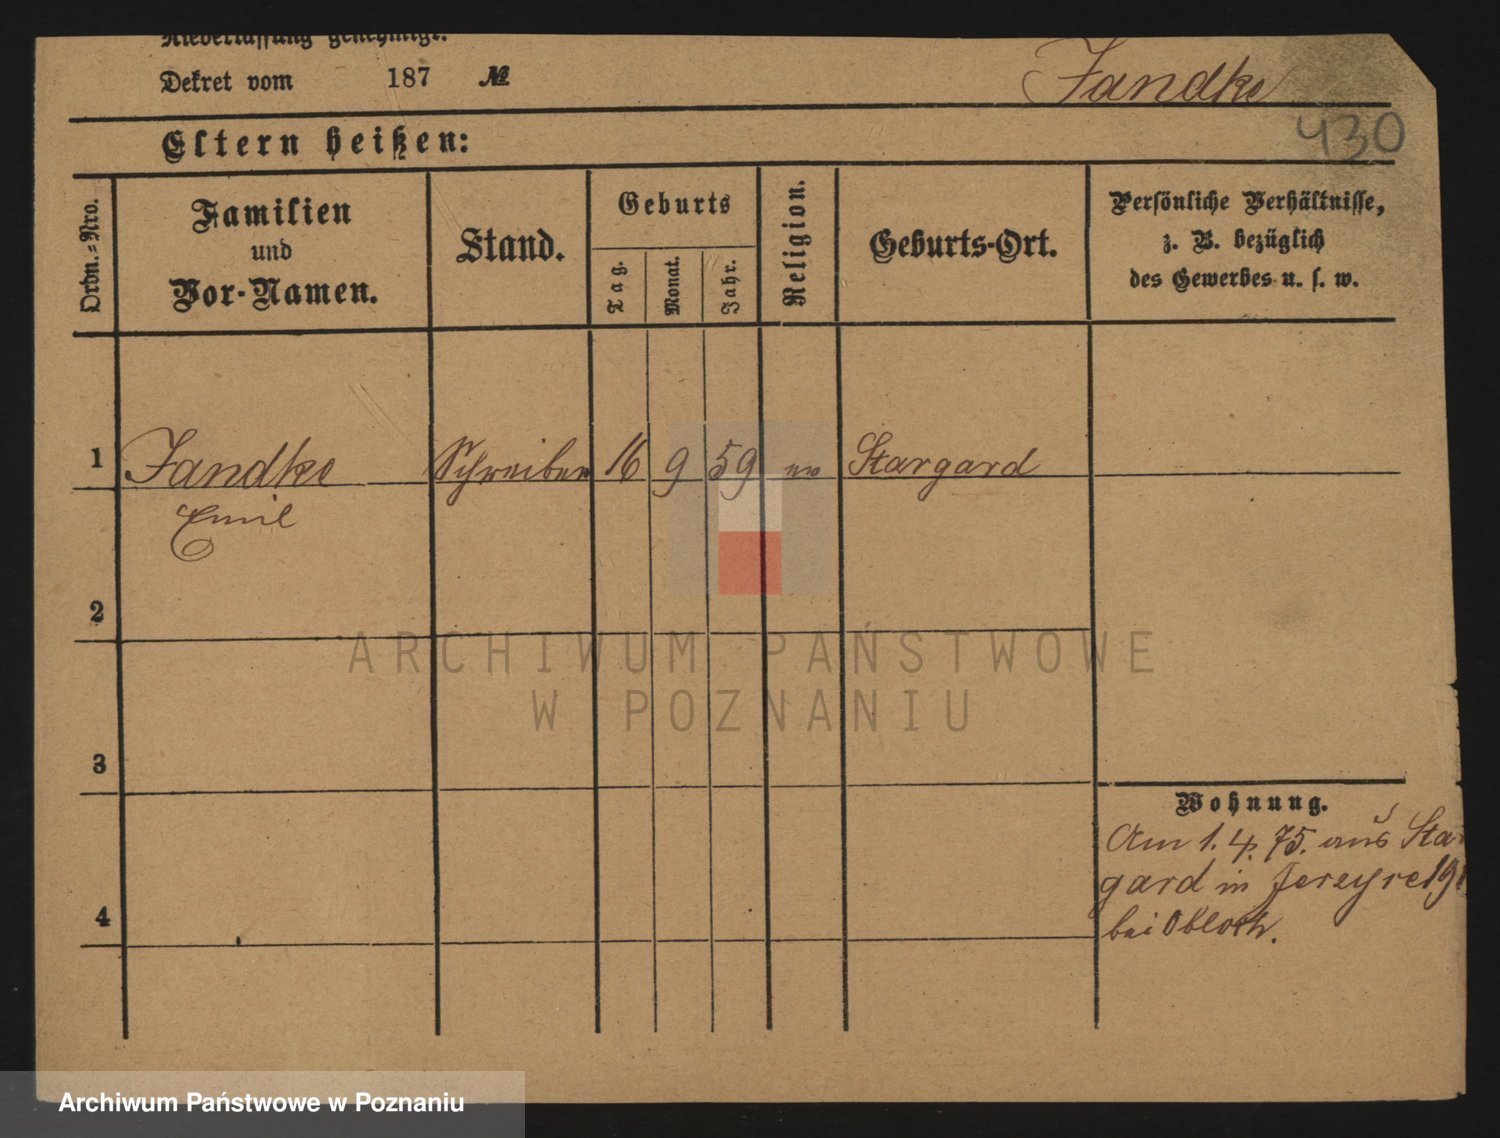 Niederlassung genehmigt.
Dekret vom 187 №
Jandke
430
Eltern heißen:
Ordn.=Nro.
Familien
und
Vor-Namen.
Stand.
Geburts
Tag.
Monat.
Jahr.
Religion.
Geburts-Ort.
Persönliche Verhältnisse,
z. B. bezüglich
des Gewerbes u. s. w.
1 Jandke Schreiber 16 9 59 ev Stargard
Emil
2
ARCHIWUM PAŃSTWOWE
W POZNANIU
3
Wohnung.
Am 1. 4. 75. aus Star
gard in
bei
4
Archiwum Państwowe w Poznaniu